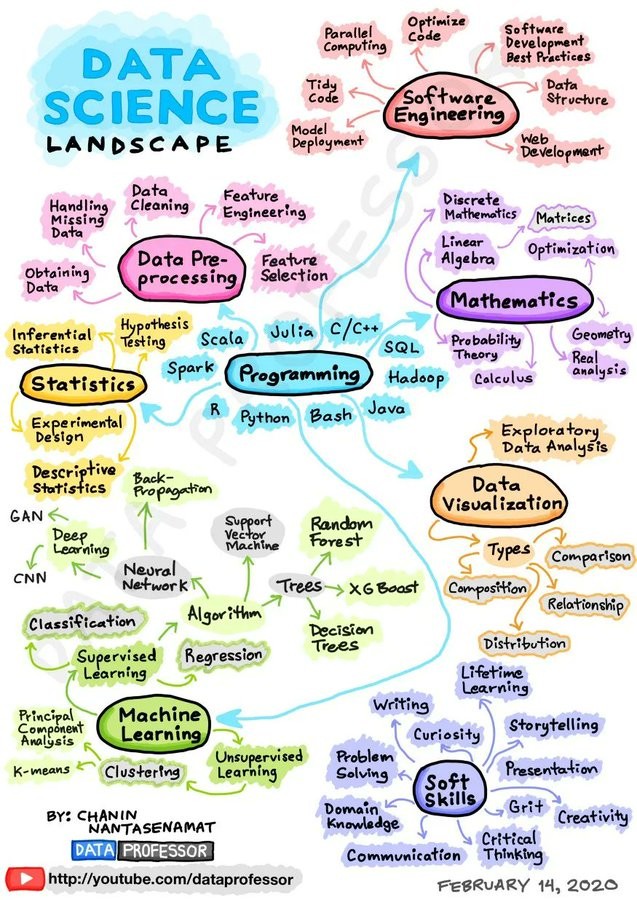 DATA
SCIENCE
LANDSCAPE
Parallel
Computing
Optimize
Code
Software
Development
Best Practices
Tidy
Code
Data
Structure
Model
Deployment
Web
Development
Software
Engineering
Handling
Missing
Data
Data
Cleaning
Feature
Engineering
Obtaining
Data
Feature
Selection
Data Pre-
processing
Discrete
Mathematics
Matrices
Linear
Algebra
Optimization
Mathematics
Probability
Theory
Calculus
Geometry
Real
analysis
Inferential
Statistics
Hypothesis
Testing
Statistics
Experimental
Design
Descriptive
Statistics
Scala
Julia
C/C++
SQL
Spark
Programming
Hadoop
R
Python
Bash
Java
Exploratory
Data Analysis
Data
Visualization
Types
Comparison
Composition
Relationship
Distribution
Back-
Propagation
GAN
Deep
Learning
CNN
Neural
Network
Support
Vector
Machine
Random
Forest
Trees
XG Boost
Decision
Trees
Algorithm
Classification
Supervised
Learning
Regression
Machine
Learning
Principal
Component
Analysis
K-means
Clustering
Unsupervised
Learning
Lifetime
Learning
Writing
Curiosity
Storytelling
Problem
Solving
Presentation
Soft
Skills
Grit
Creativity
Domain
Knowledge
Communication
Critical
Thinking
BY: CHANIN
NANTASENAMAT
DATA PROFESSOR
http://youtube.com/dataprofessor
FEBRUARY 14, 2020
DATA PROFESSOR